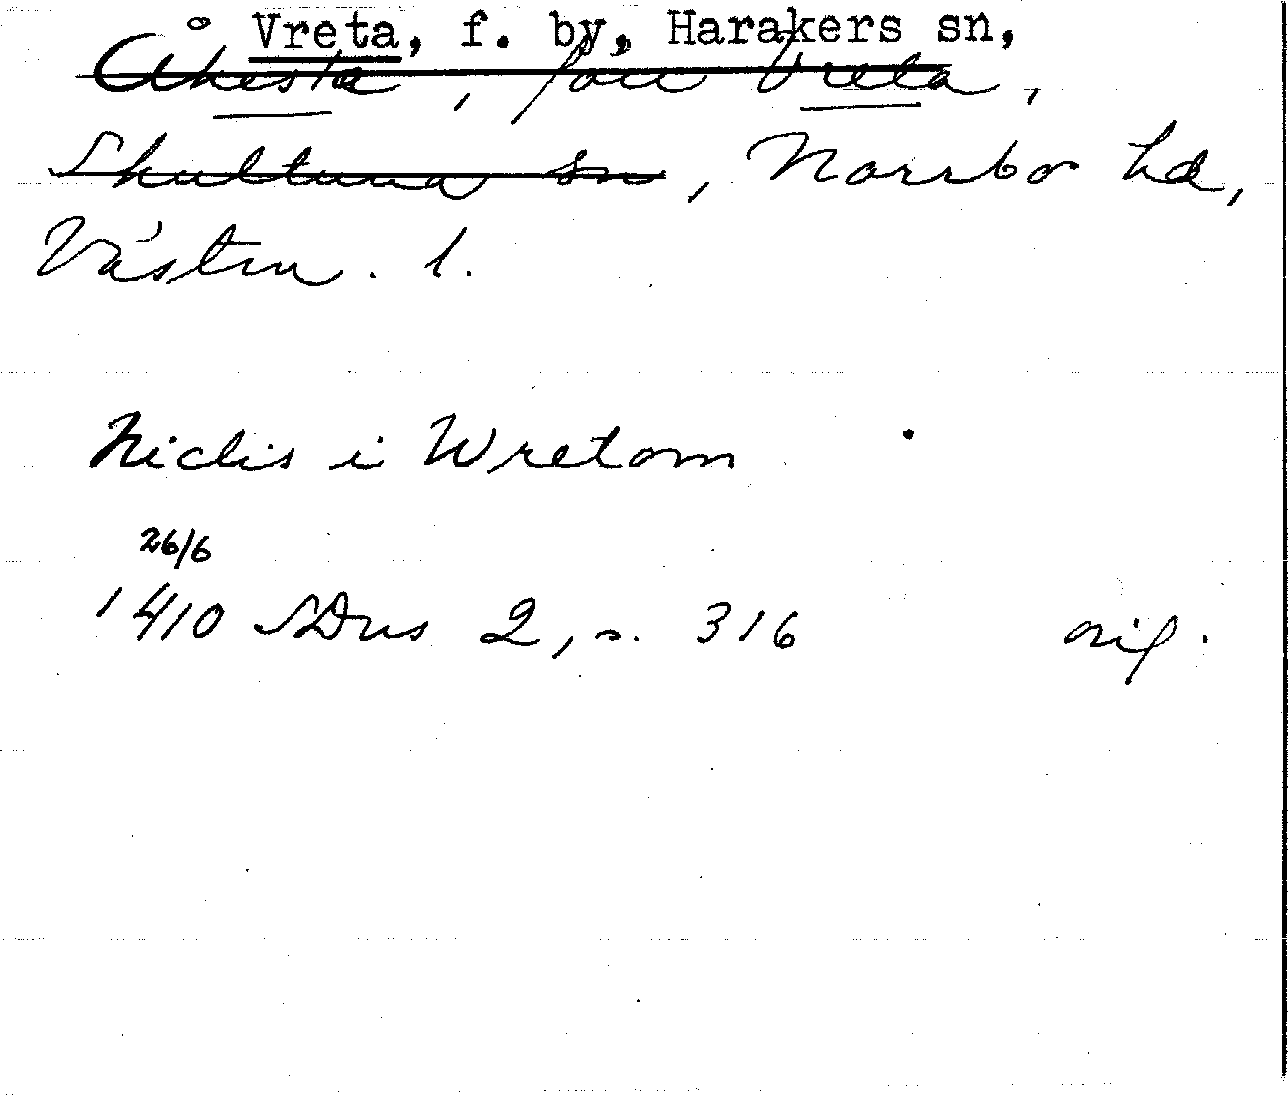 Vreta, f. by, Harakers sn,
Åkesta, förr Vreta,
Skultuna sn, Norrbo hd,
Västm. l.
Niclis i Wretom
26/6
1410 SDns 2, s. 316 orig.